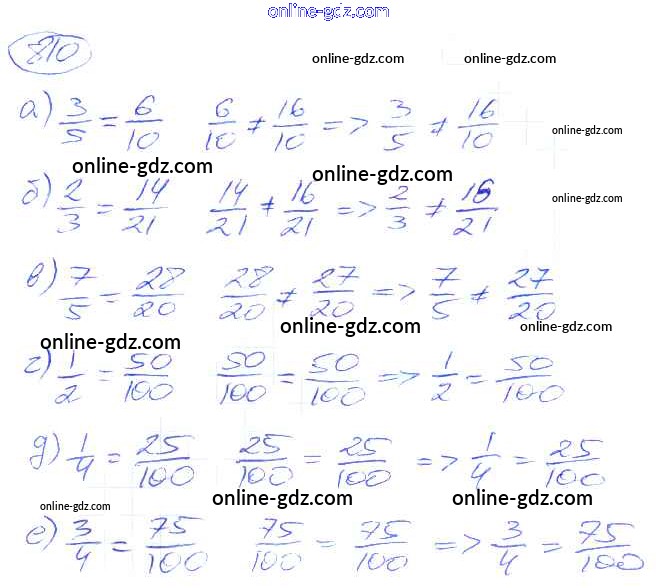 online-gdz.com
810 online-gdz.com online-gdz.com
а) 3/5 = 6/10 6/10 ≠ 16/10 => 3/5 ≠ 16/10 online-gdz.com
online-gdz.com online-gdz.com
б) 2/3 = 14/21 14/21 ≠ 16/21 => 2/3 ≠ 16/21 online-gdz.com
в) 7/5 = 28/20 28/20 ≠ 27/20 => 7/5 ≠ 27/20
online-gdz.com online-gdz.com online-gdz.com
г) 1/2 = 50/100 50/100 = 50/100 => 1/2 = 50/100
д) 1/4 = 25/100 25/100 = 25/100 => 1/4 = 25/100
online-gdz.com online-gdz.com online-gdz.com
е) 3/4 = 75/100 75/100 = 75/100 => 3/4 = 75/100